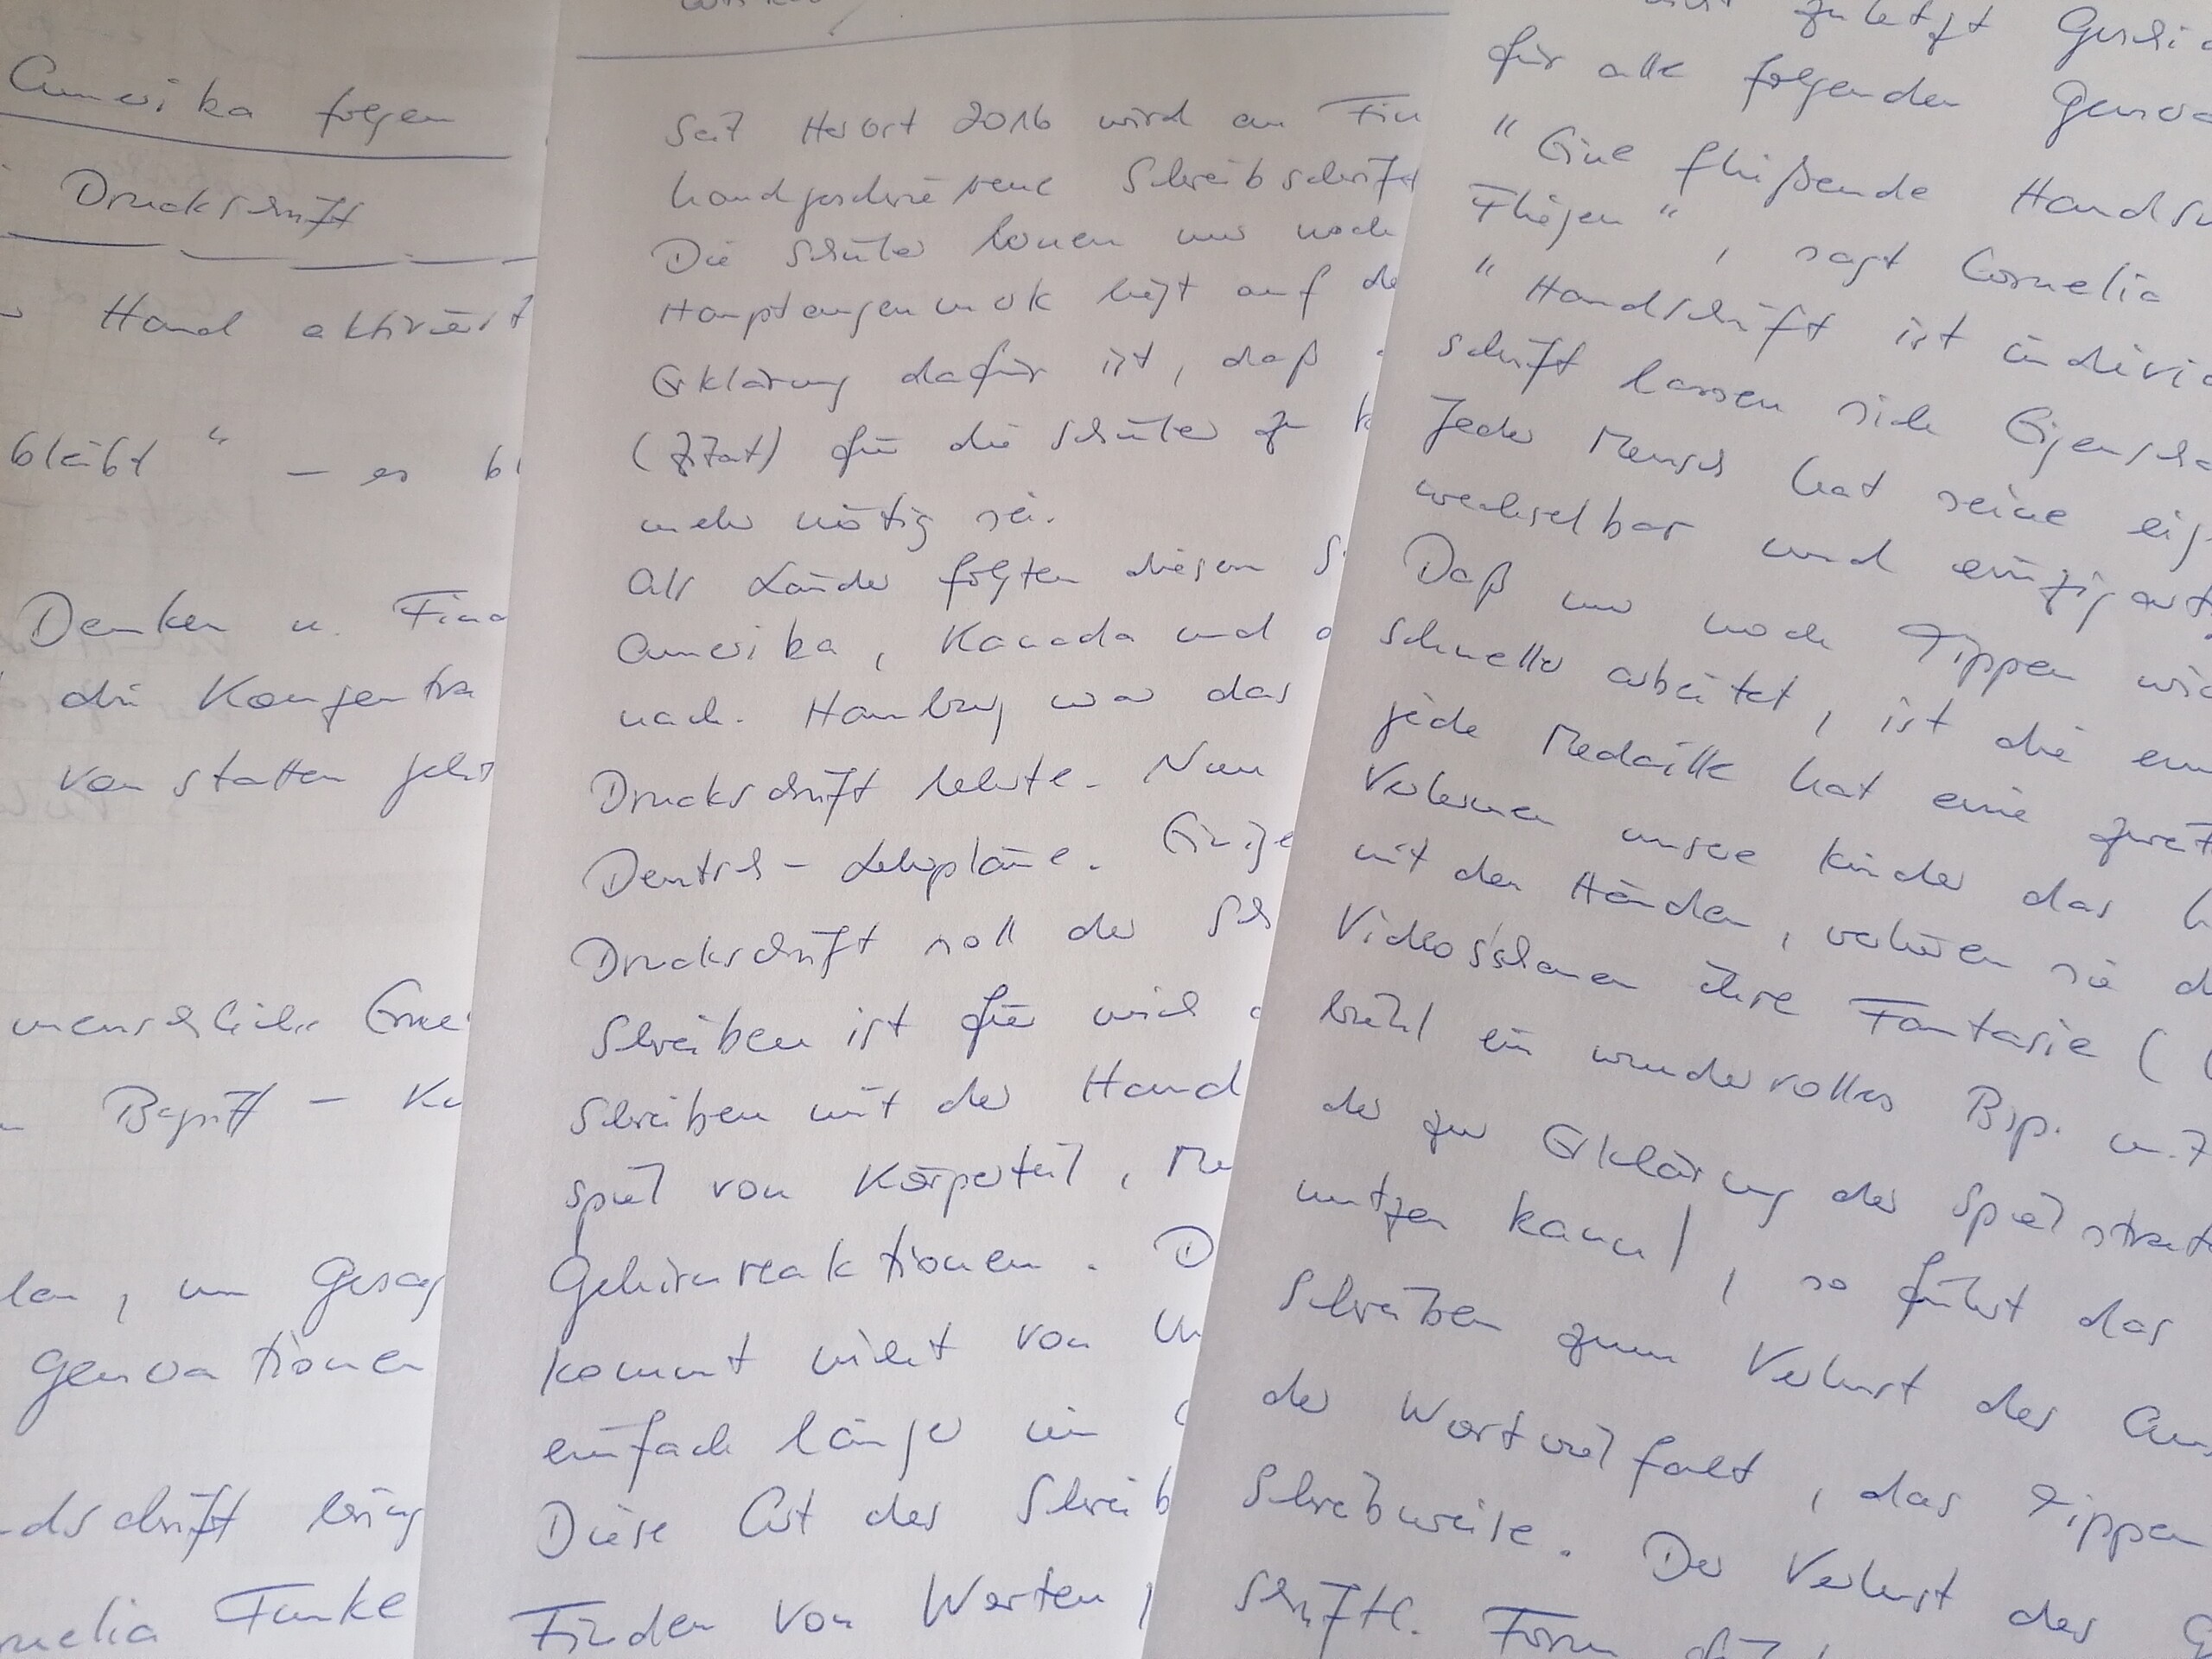 Amerika folgen
Druckschrift
Hand aktiviert
bleibt " - es bl
Denken u. Find
die Konzentra
von statten gehi
menschliche Erne
Begriff - Ku
len, um Gesag
Generationen
dschrift bring
rnelia Funke
Seit Herbst 2016 wird an Fin
handgeschriebene Schreibschrift
Die Schüler lernen nur noch
Hauptaugenmerk liegt auf de
Erklärung dafür ist, daß
(Zitat) für die Schüler zu k
mehr nötig sei.
Als Länder folgten diesem S
Amerika, Kanada und
nach. Hamburg war das
Druckschrift lehrte. Nun
Deutsch - Lehrpläne.
Druckschrift soll der Sch
Schreiben ist für mich
Schreiben mit der Hand
spiel von Körperteil, Mu
Gehirnreaktionen. D
kommt nicht von Un
einfach länger im
Diese Art des Schreib
Finden von Worten,
zuletzt Geschic
für alle folgenden Genera
"Eine fließende Handsc
Fliegen", sagt Cornelia
"Handschrift ist individ
schrift lassen sich Eigenscha
Jeder Mensch hat seine eig
wechselbar und einzigart
Daß nur noch Tippen wic
schneller arbeitet, ist die ein
jede Medaille hat eine zweit
Verlernen unsere Kinder das
mit den Händen, verlieren sie d
Videosschauen ihre Fantasie (
ein wundervolles Bsp. u.Z
der zur Erklärung der Spielstrate
nutzen kann), so führt das
Schreiben zum Verlust des Aus
der Wortvielfalt, das Tippen
Schreibweise. Der Verlust des G
Schriftl. Form